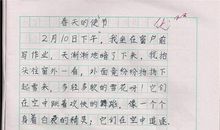 春天的使节
2月10日下午，我坐在窗户前
写作业，天渐渐地暗了下来，我抬
头往窗外一看，外面竟纷纷扬扬下
起雪来，多轻多软的雪花呀！它们
在空中跳着欢快的舞蹈，像一个个
身着白裳的精灵；它们在空中追逐